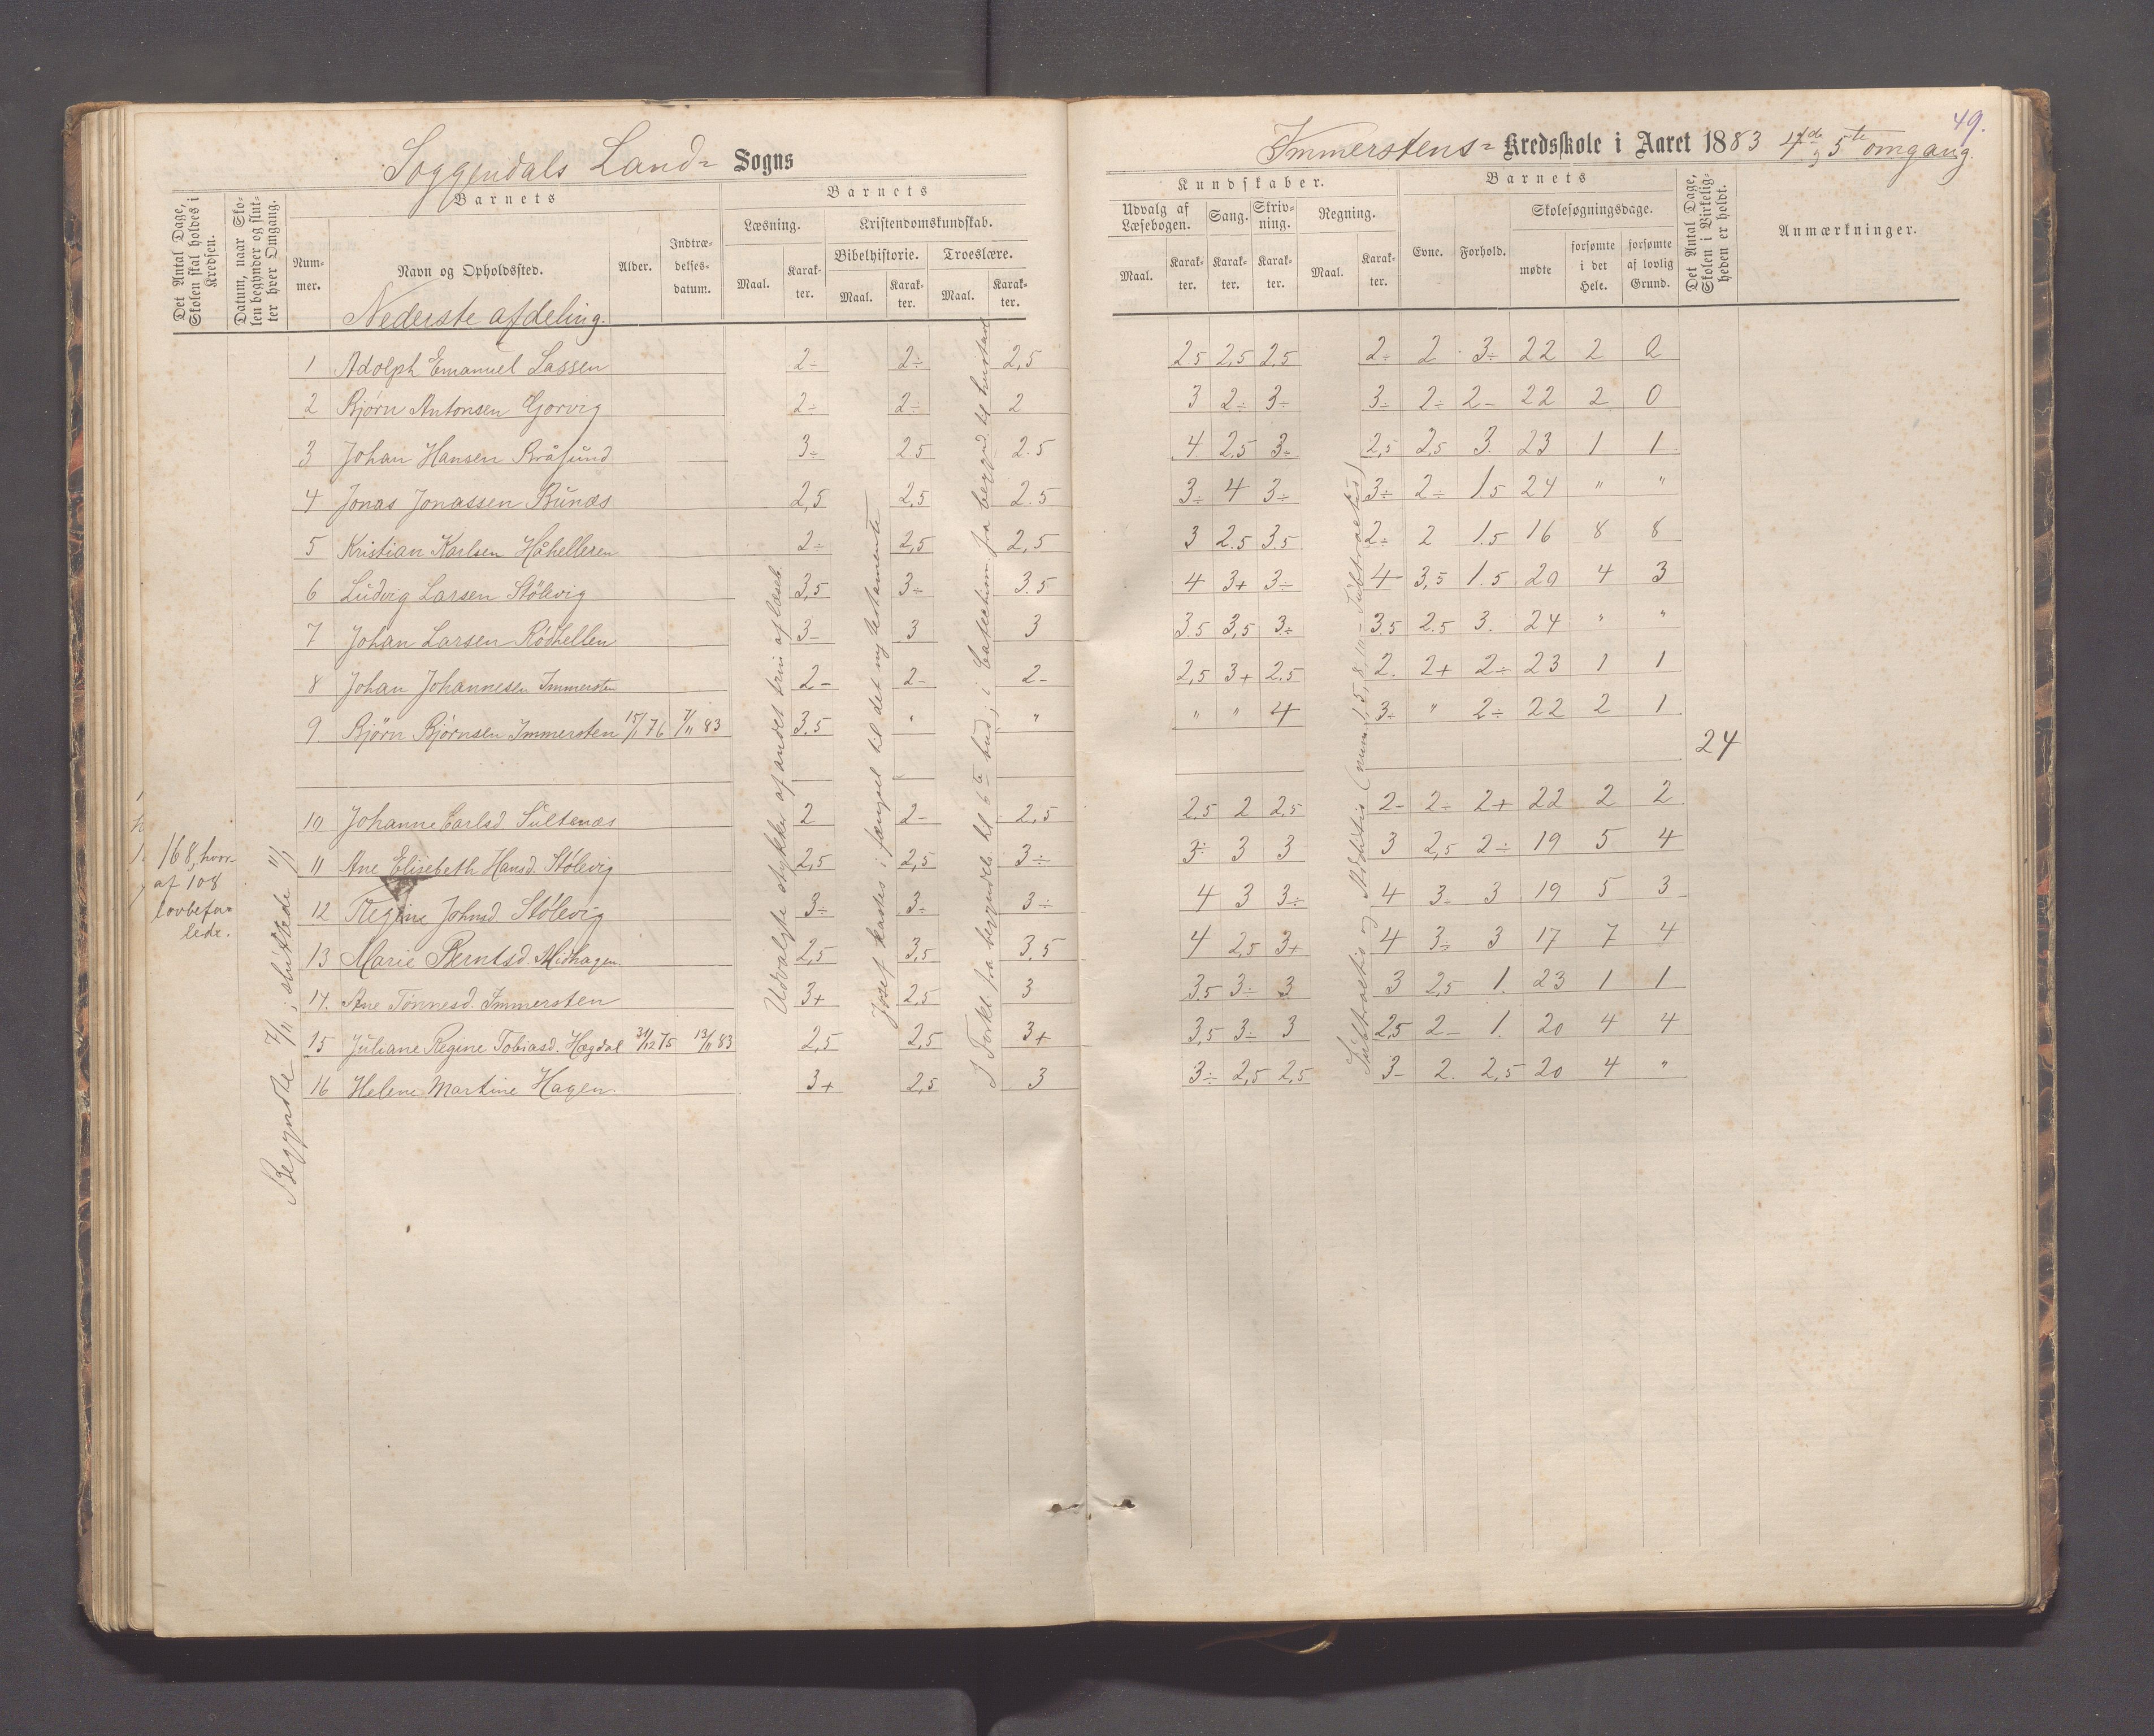 Soggendals Land= Sogns
Det Antal Dage, Skolen skal holdes i Kredsen.
Datum, naar Skolen begynder og slutter hver Omgang.
Barnets
Nummer.
Navn og Opholdssted.
Alder.
Indtrædelsesdatum.
Barnets
Læsning.
Kristendomskundskab.
Bibelhistorie.
Troeslære.
Maal. Karakter. Maal. Karakter. Maal. Karakter.
Nederste afdeling.
1 Adolph Emanuel Lassen 2- 2÷ 2,5
2 Bjørn Antonsen Gorvig 2÷ 2÷ 2
3 Johan Hansen Bråsund 3÷ 2 5 2.5
4 Jonas Jonassen Bunæs 2,5 2,5 2.5
5 Kristian Karlsen Håhelleren 2÷ 2,5 2,5
6 Ludvig Larsen Stölevig 3,5 3÷ 3.5
7 Johan Larsen Rödhellen 3- 3 3
8 Johan Johannesen Immersten 2- 2- 2-
9 Bjørn Bjørnsen Immersten 15/1 76 7/11 83 3.5 " "
10 Johanne Carlsd. Sultenæs 2 2- 2,5
11 Ane Elisebeth Hansd. Stölevig 2,5 2,5 3÷
12 Regine Johnsd. Stölevig 3÷ 3÷ 3÷
13 Marie Berntsd. Midhagen. 2,5 3,5 3,5
14. Ane Tönnesd. Immersten 3+ 2,5 3
15 Juliane Regine Tobiasd. Hægdal 31/12 75 13/11 83 2,5 2,5 3+
16 Helene Martine Hagen. 3+ 2,5 3
168, hvor-
af 108
lovbefa-
lede.
Begyndte 7/11; sluttede 11/1
Udvalgte stykker af andet trin af læseb.
Josef kastes i fængsel til det ny testamente
I Forkl. fra begyndels. til 6te bud; i Catechism. fra begynd. til hustavl
49.
Immerstens= Kredsskole i Aaret 1883 4de og 5te omgang.
Kundskaber.
Udvalg af Læsebogen.
Sang.
Skrivning.
Regning.
Maal. Karakter. Karakter. Karakter. Maal. Karakter.
Barnets
Evne.
Forhold.
Skolesøgningsdage.
mødte
forsømte i det Hele.
forsømte af lovlig Grund.
Det Antal Dage, Skolen i Virkeligheden er holdt.
Anmærkninger.
2.5 2,5 2.5 2÷ 2 3÷ 22 2 2
3 2÷ 3÷ 3÷ 2÷ 2- 22 2 0
4 2,5 3÷ 2,5 2,5 3. 23 1 1
3÷ 4 3÷ 3÷ 2÷ 1.5 24 " "
3 2.5 3.5 2÷ 2 1.5 16 8 8
4 3+ 3÷ 4 3,5 1.5 20 4 3
3.5 3,5 3÷ 3.5 2.5 3. 24 " "
2,5 3+ 2.5 2. 2+ 2÷ 23 1 1
" " 4 3÷ " 2÷ 22 2 1
24
2.5 2 2,5 2- 2÷ 2+ 22 2 2
3÷ 3 3 3 2,5 2÷ 19 5 4
4 3 3÷ 4 3÷ 3 19 5 3
4 2,5 3+ 4 3÷ 3 17 7 4
3.5 3÷ 3 3 2,5 1. 23 1 1
3,5 3÷ 3 2,5 2- 1. 20 4 4
3÷ 2,5 2,5 3- 2. 2,5 20 4 "